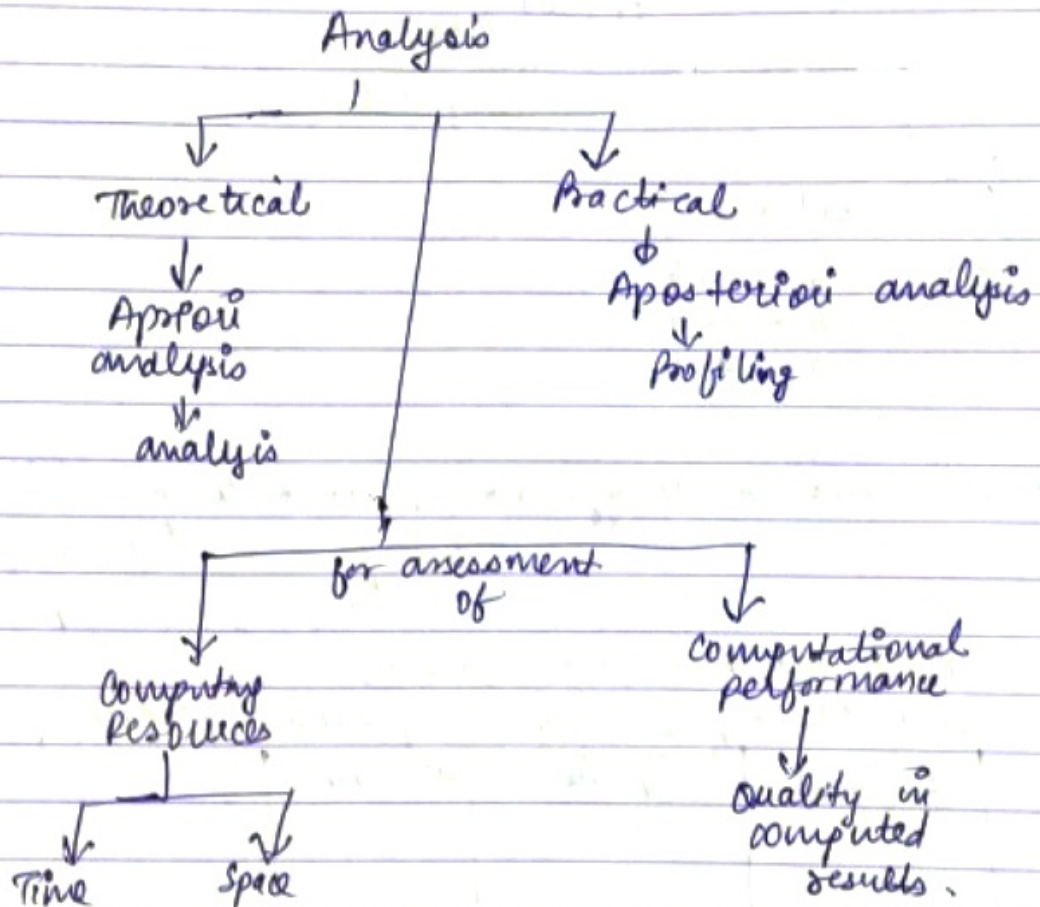 Analysis
Theoretical
Practical
Apriori
analysis
analyis
Aposteriori analysis
Profiling
for assessment
of
Computing
Resources
Time
Space
Computational
performance
Quality in
computed
results.